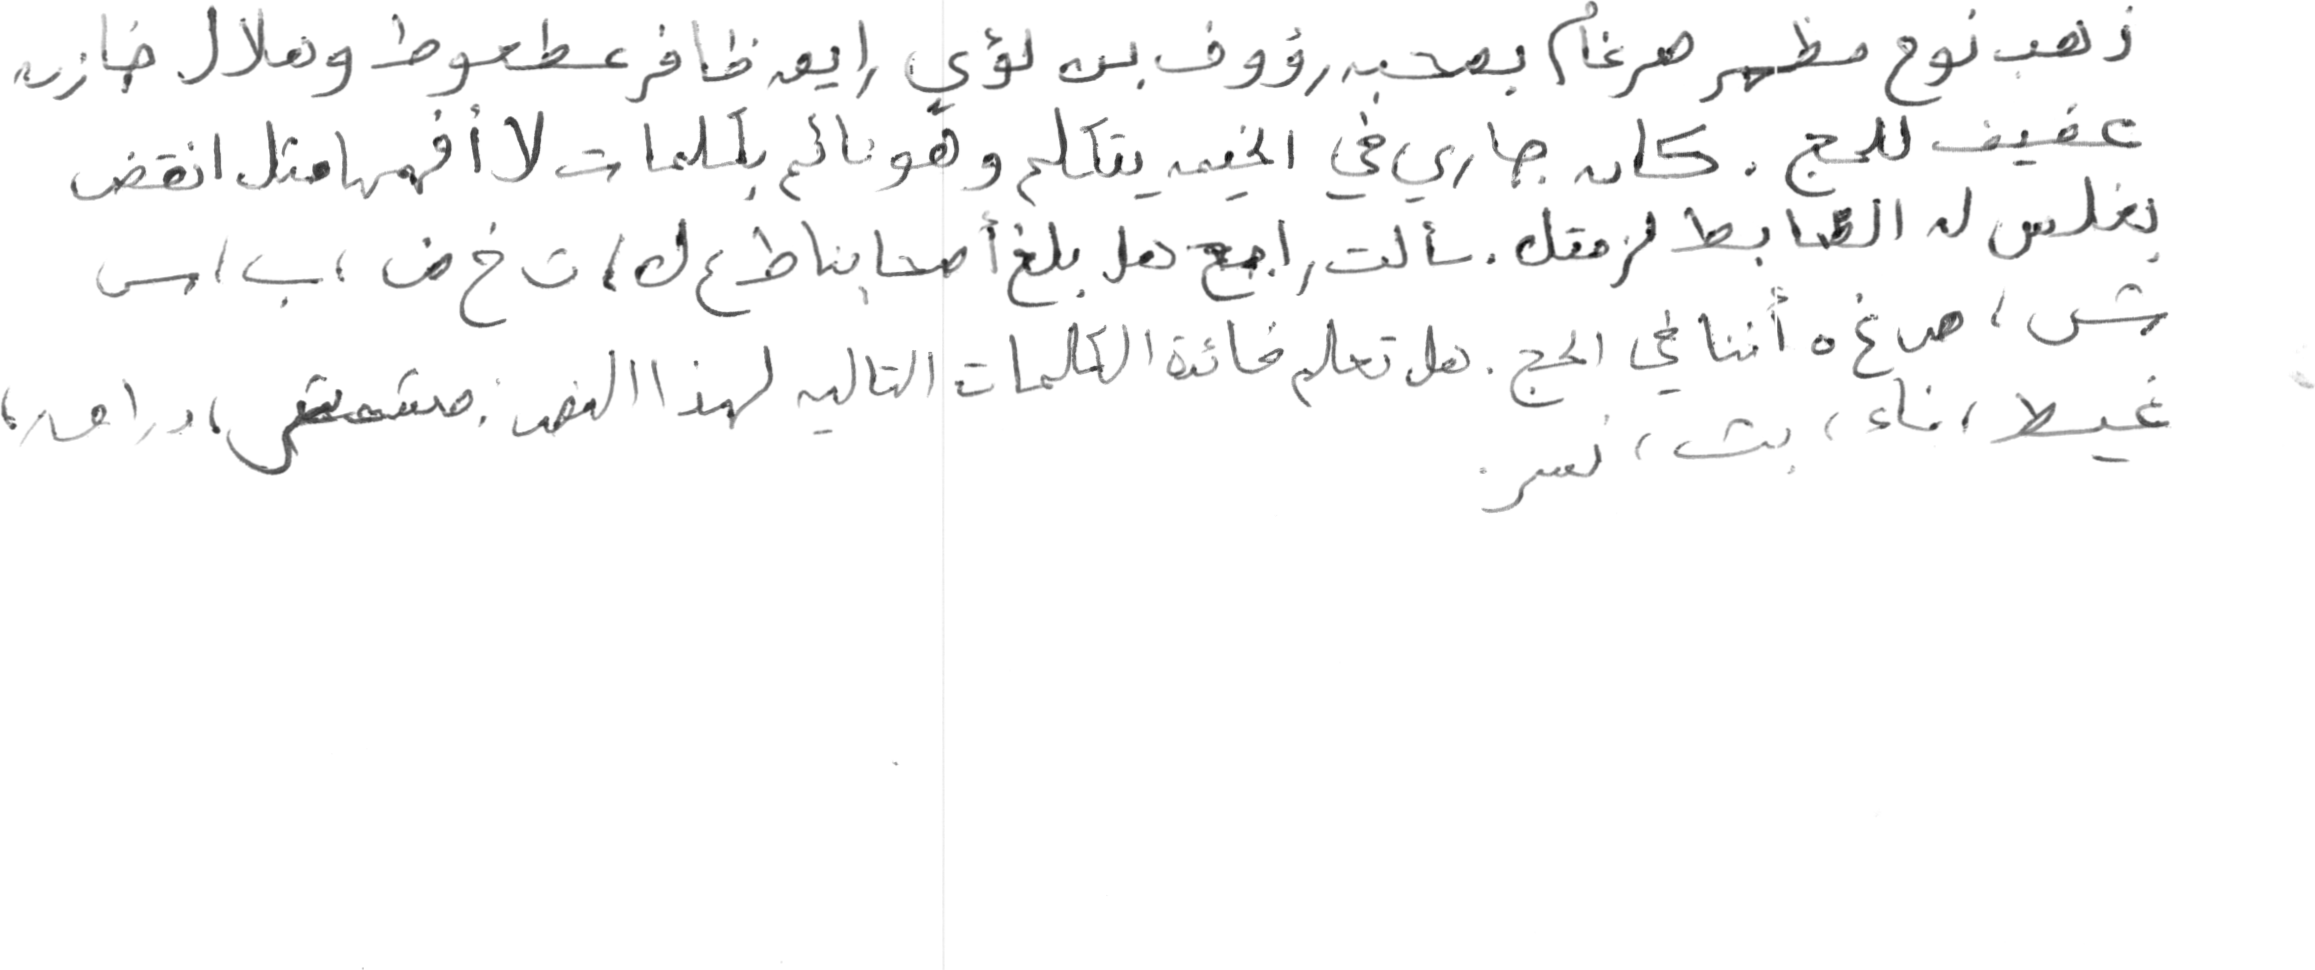 ذهب نوح مظهر ضرغام بصحبه رؤوف بن لؤي رايق ظافر عطعوط وهلال خازن
عفيف للحج . كان جاري في الخيمه يتكلم وهو نائم بكلمات لا أفهمها مثل انقض
بغلس له الضابط لزمتك . سألت راجح هل بلغ أصحابنا ط ع ك ، ت خ ض ، ب ، س
ش ، ص غ ه أننا في الحج . هل تعلم فائدة الكلمات التاليه لهذا النص : مشمش ، دراق ،
غيط ، ناء ، بث ، نسر .